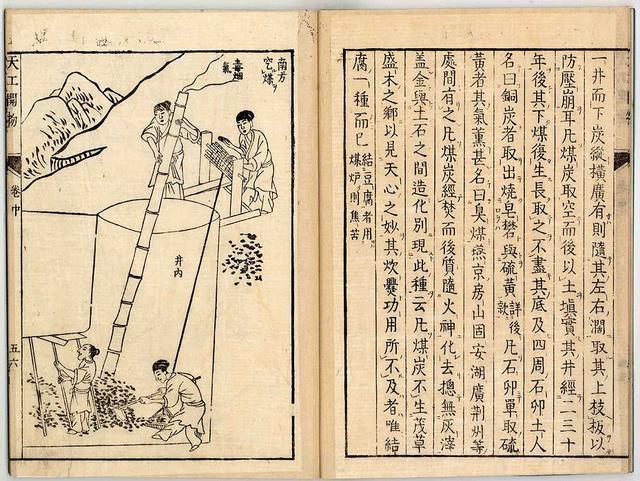 一井而下炭縱橫廣有則隨其左右濶取其上枝板以
防壓崩耳凡煤炭取空而後以土填實其井經二三十
年後其下煤復生長取之不盡其底及四周石卵土人
名曰銅炭者取出燒皂礬與硫黃詳後款凡石卵單取硫
黃者其氣薰甚名曰臭煤燕京房山固安湖廣荆州等
處間有之凡煤炭經焚而後質隨火神化去揔無灰滓
蓋金與土石之間造化別現此種云凡煤炭不生茂草
盛木之鄉以見天心之妙其炊爨功用所不及者唯結
腐一種而已結豆腐者用煤炉則焦苦
南方
穵煤
毒烟
氣
井內
天工開物
卷中
五六